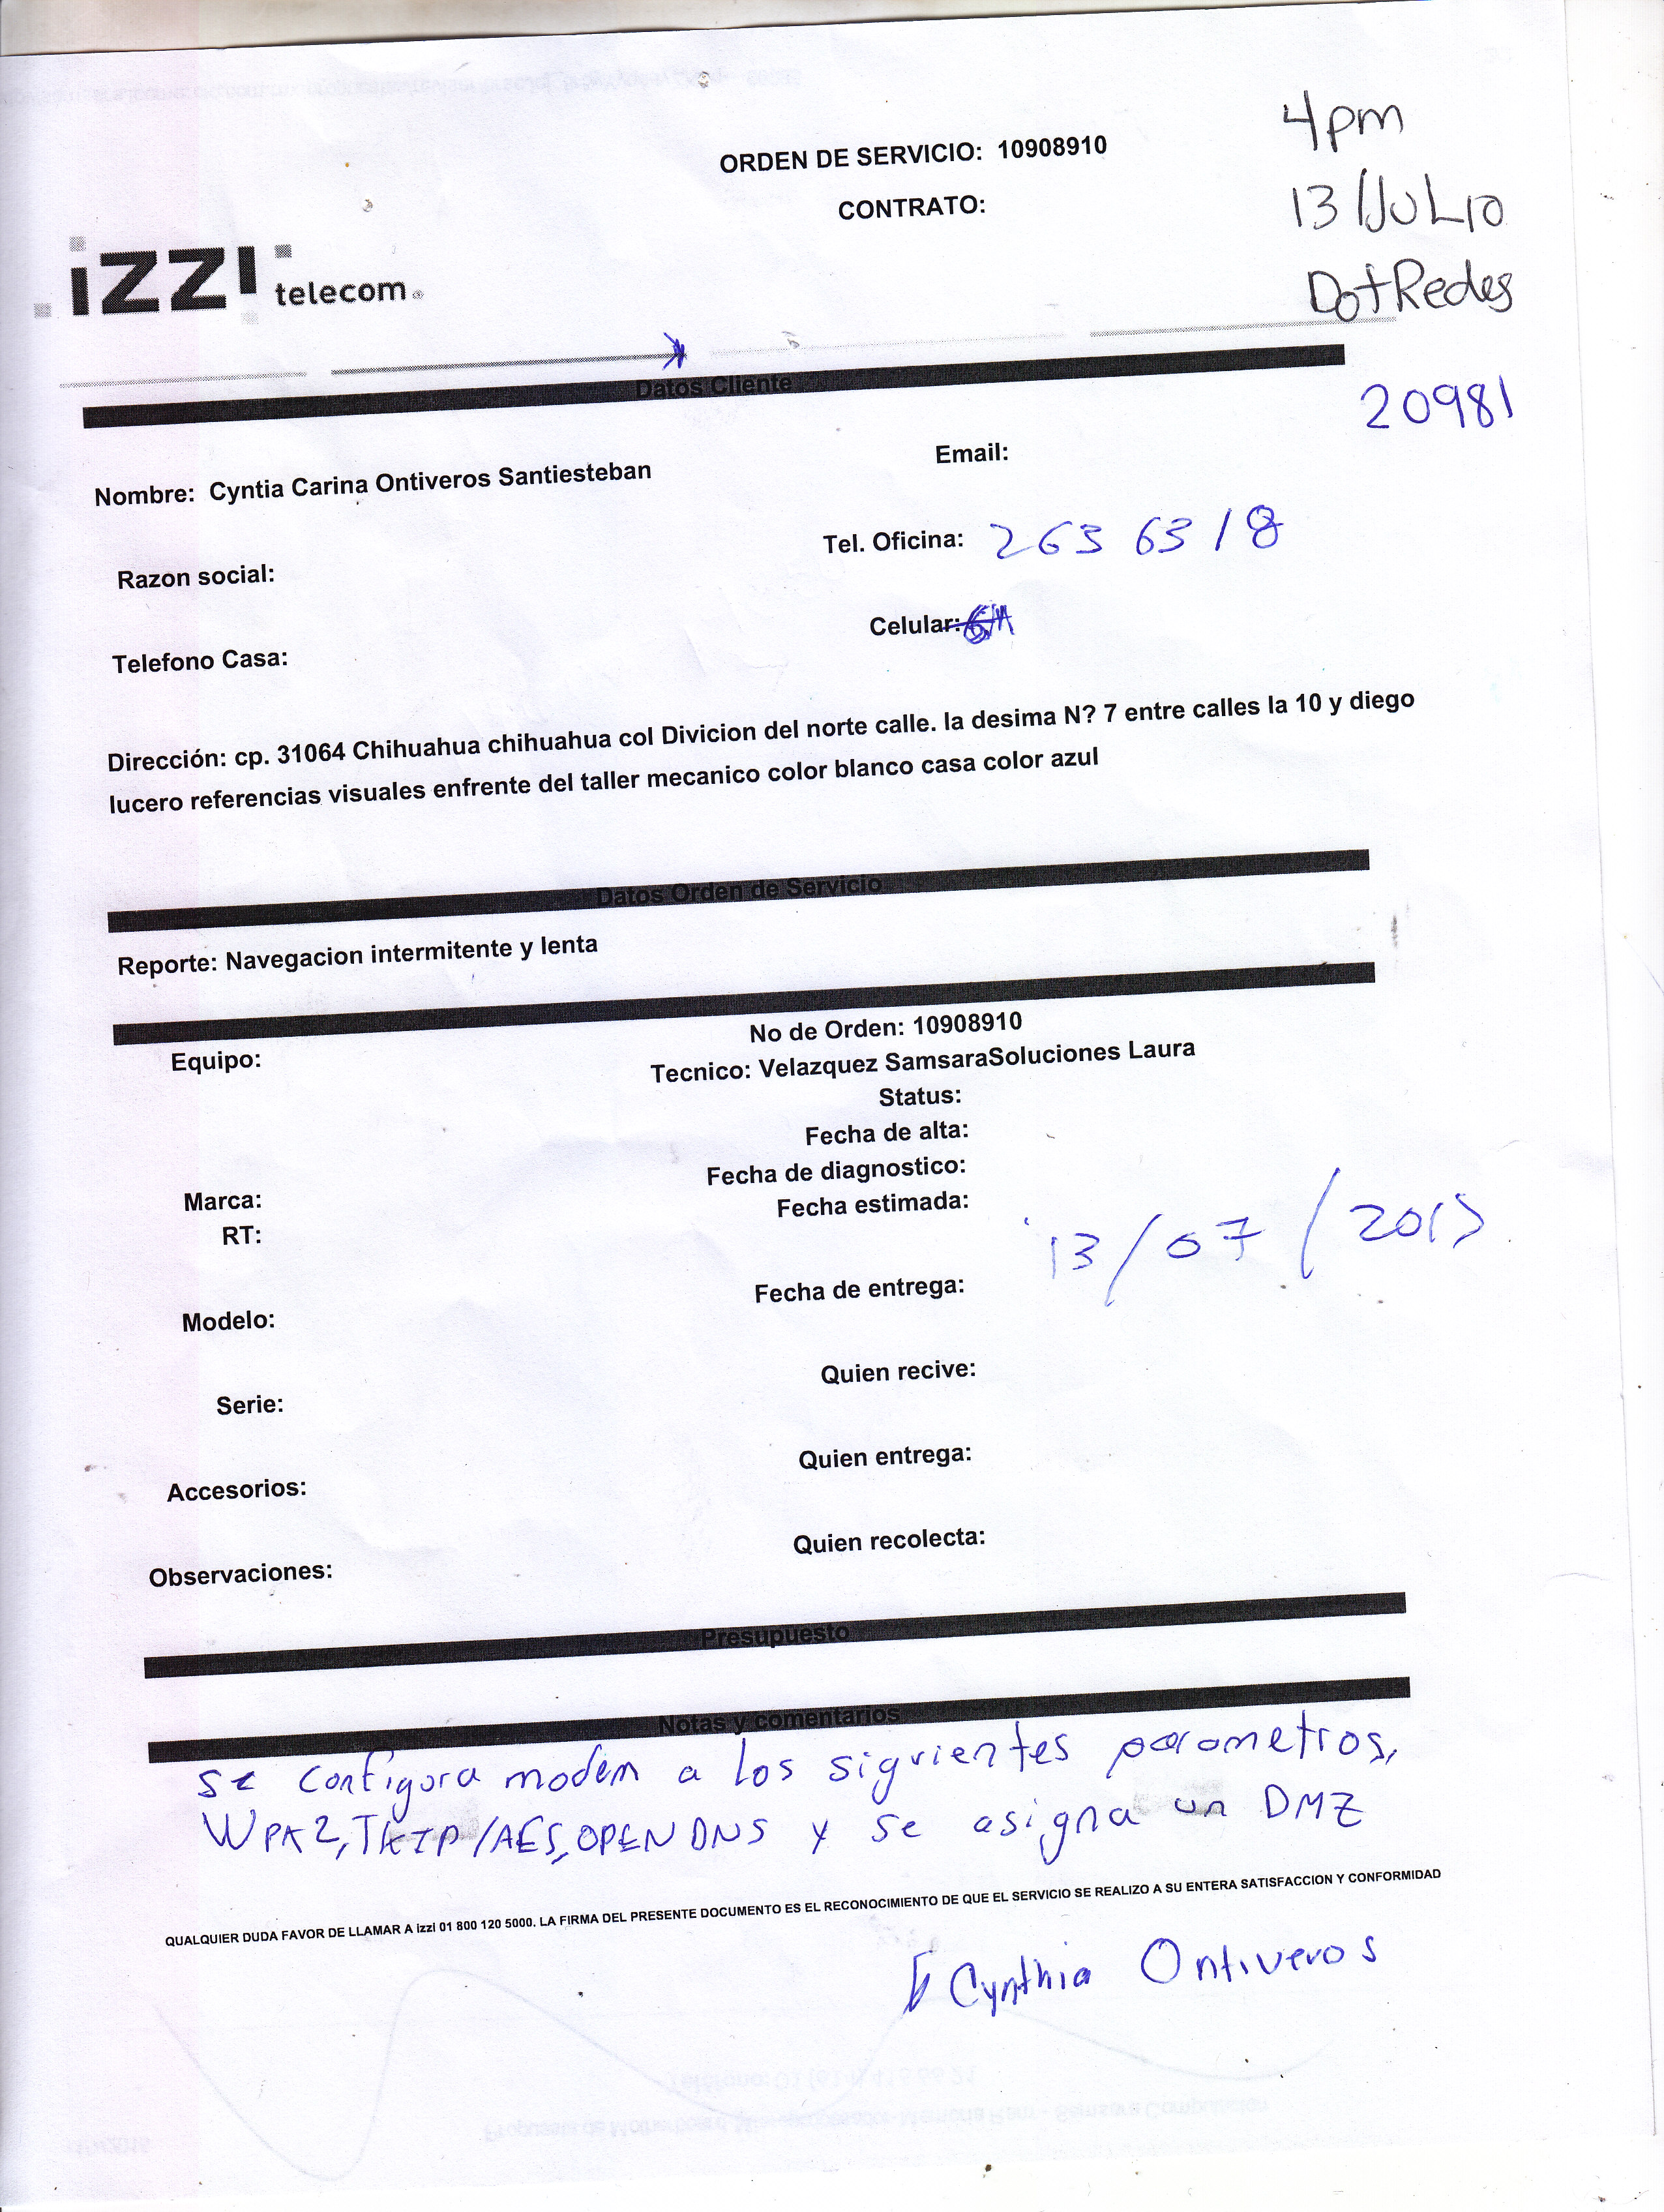 ORDEN DE SERVICIO: 10908910
CONTRATO:
4pm
13/JULIO
DotRedes
izzi telecom
Datos Cliente
20981
Email:
Nombre: Cyntia Carina Ontiveros Santiesteban
Tel. Oficina: 263 63 18
Razon social:
Celular:
Telefono Casa:
Dirección: cp. 31064 Chihuahua chihuahua col Divicion del norte calle. la desima N? 7 entre calles la 10 y diego
lucero referencias visuales enfrente del taller mecanico color blanco casa color azul
Datos Orden de Servicio
Reporte: Navegacion intermitente y lenta
No de Orden: 10908910
Equipo:
Tecnico: Velazquez SamsaraSoluciones Laura
Status:
Fecha de alta:
Fecha de diagnostico:
Marca:
Fecha estimada:
RT:
13/07/2015
Fecha de entrega:
Modelo:
Quien recive:
Serie:
Quien entrega:
Accesorios:
Quien recolecta:
Observaciones:
Presupuesto
Notas y comentarios
se configura modem a los siguientes parametros,
WPA2, TKIP/AES, OPEN DNS y se asigna un DMZ
QUALQUIER DUDA FAVOR DE LLAMAR A izzi 01 800 120 5000. LA FIRMA DEL PRESENTE DOCUMENTO ES EL RECONOCIMIENTO DE QUE EL SERVICIO SE REALIZO A SU ENTERA SATISFACCION Y CONFORMIDAD
Cynthia Ontiveros